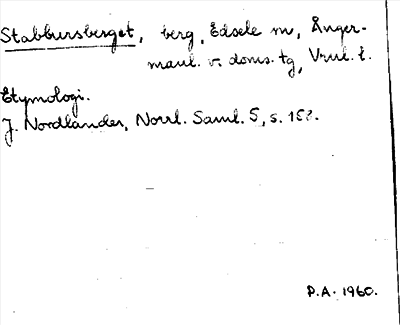 Stabbursberget, berg, Edsele sn, Ånger-
manl. v. doms. tg, Vnrl. l.
Etymologi.
J. Nordlander, Norrl. Saml. 5, s. 152.
P.A. 1960.